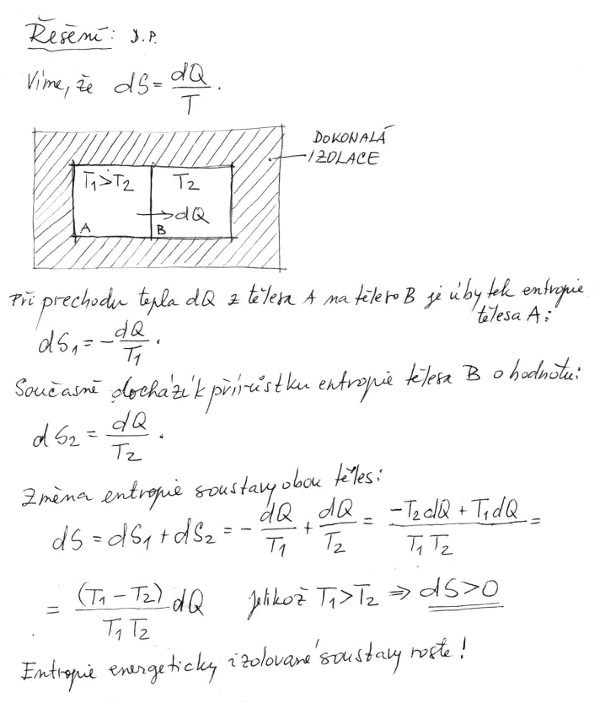 Řešení: D.P.
Víme, že dS = dQ/T.
DOKONALÁ
IZOLACE
T₁>T₂ T₂
→dQ
A B
Při prechodu tepla dQ z tělesa A na těleso B je úbytek entropie
tělesa A:
dS₁ = -dQ/T₁.
Současně dochází k přírůstku entropie tělesa B o hodnotu:
dS₂ = dQ/T₂.
Změna entropie soustavy obou těles:
dS = dS₁ + dS₂ = -dQ/T₁ + dQ/T₂ = (-T₂dQ + T₁dQ)/(T₁T₂) =
= (T₁-T₂)/(T₁T₂) dQ Jelikož T₁>T₂ ⇒ dS>0
Entropie energeticky izolované soustavy roste!